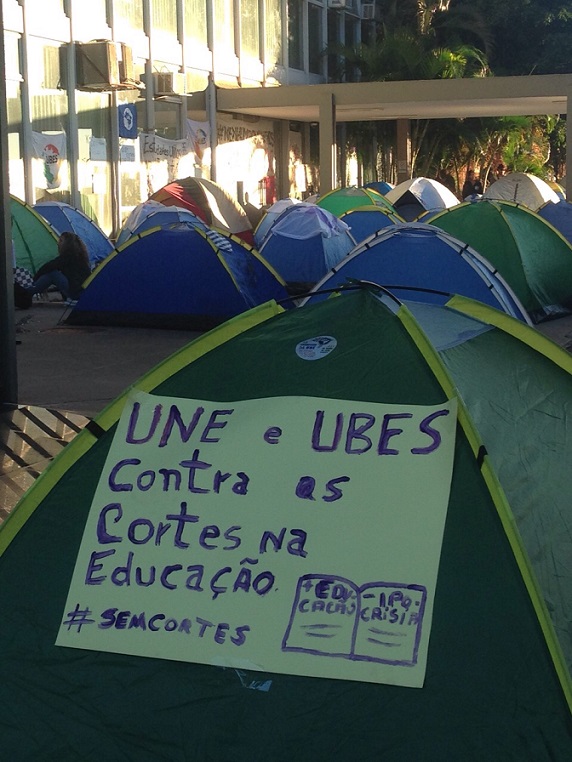 UBES
UNE e UBES
Contra as
Cortes na
Educação.
#SEMCORTES
+EDU-
CAÇÃO
-IPO-
CRISIA